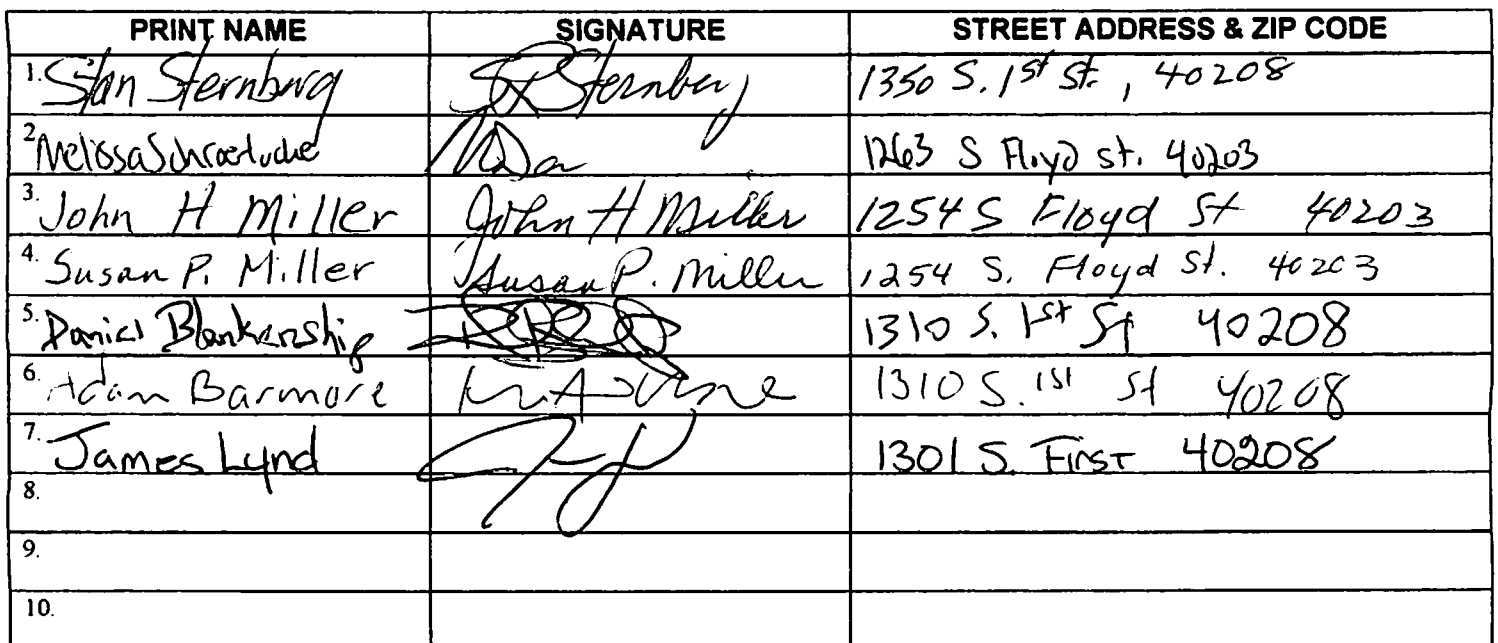 PRINT NAME SIGNATURE STREET ADDRESS & ZIP CODE
1. Stan Sternburg Sternberg 1350 S. 1st St., 40208
2. Melissa 1263 S Floyd St. 40203
3. John H Miller John H Miller 1254 S Floyd St 40203
4. Susan P. Miller Susan P. Miller 1254 S. Floyd St. 40203
5. Daniel Blankenship 1310 S. 1st St 40208
6. Adam Barmore 1310 S. 1st St 40208
7. James Lynd 1301 S. First 40208
8.
9.
10.